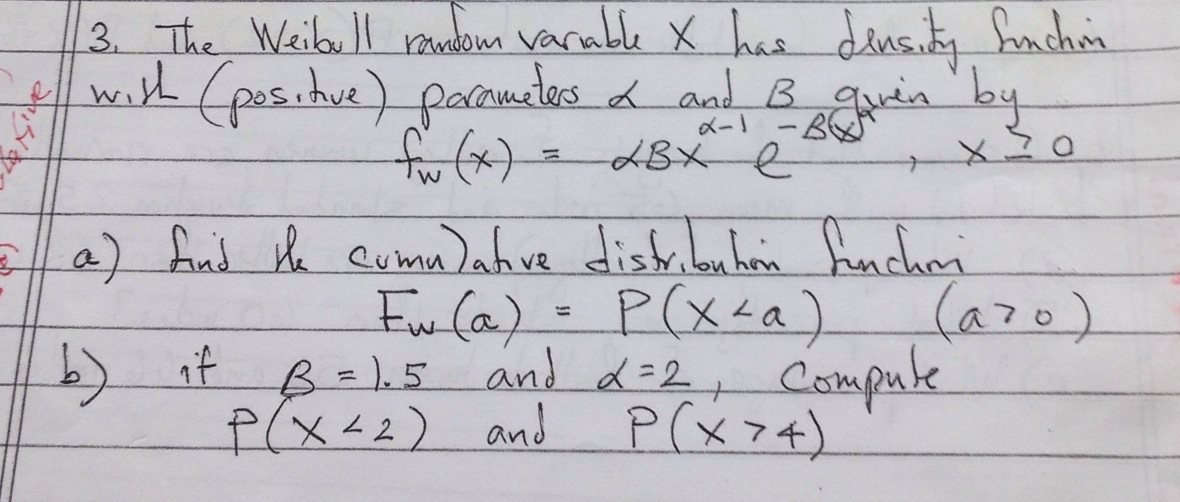 3. The Weibull random variable X has density function
with (positive) parameters α and B given by
f_w(x) = αBx^{α-1} e^{-B(x)^α}, x ≥ 0
a) find the cumulative distribution function
F_w(a) = P(X<a) (a>0)
b) if B=1.5 and α=2, compute
P(X<2) and P(X>4)